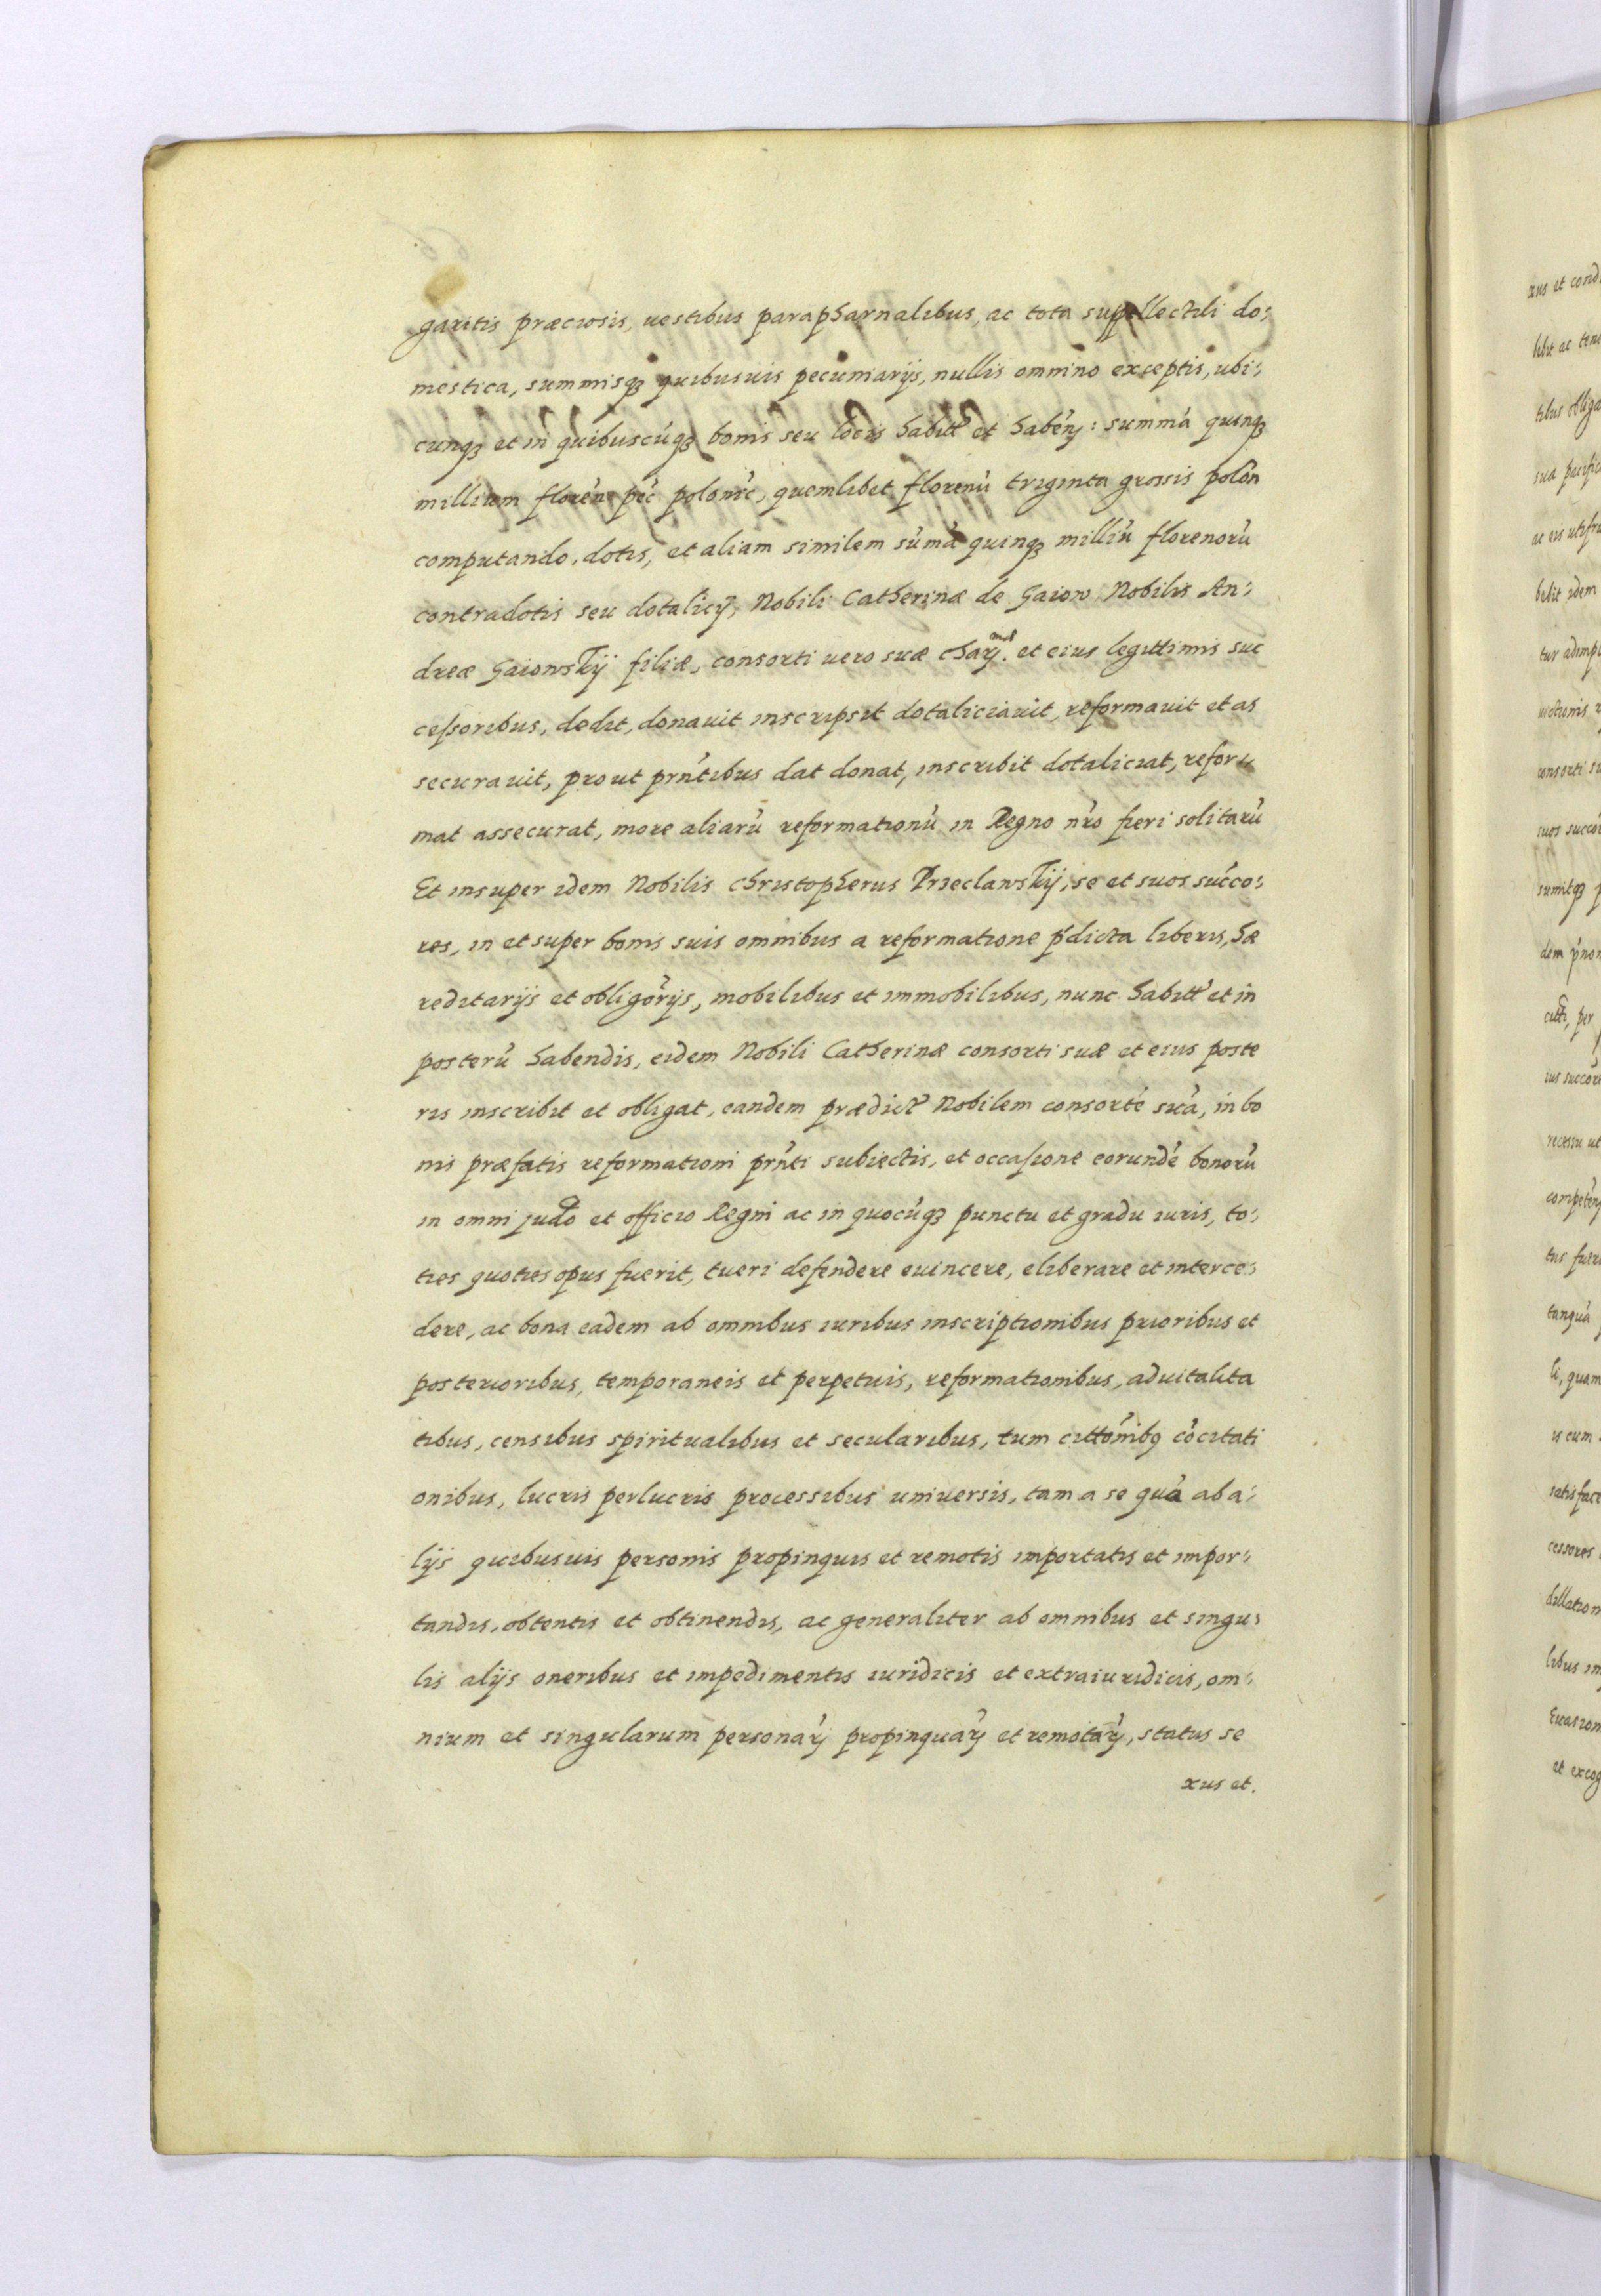 garitis præciosis, uestibus parapharnalibus, ac tota suppellectili do:
mestica, summisq3 quibusuis pecuniarijs, nullis omnino exceptis, ubi:
cunq3 et in quibuscúq3 bonis seu locis habitt et habeń: summá quinq3
millium floreń peć polonić, quemlibet florenú triginta grossis polon
computando, dotis, et aliam similem súmá quinq3 milliú florenorú
contradotis seu dotalicÿ, Nobili Catherinæ de Gaiow Nobilis An:
dreæ Gaiowskij filiæ, consorti uero suæ char. et eius legittimis suc
cessoribus, dedit, donauit inscripsit dotaliciauit, reformauit et as
securauit, prout prńtibus dat donat, inscribit dotaliciat, refor:
mat assecurat, more aliarú reformationú in Regno nŕo fieri solitarú
Et insuper idem Nobilis Christopherus Przeclawskij, se et suos succo:
res, in et super bonis suis omnibus a reformatione ṕdicta liberis, hæ
reditarijs et obligorijs, mobilibus et immobilibus, nunc habitt et in
posterú habendis, eidem Nobili Catherinæ consorti suæ et eius poste
ris inscribit et obligat, eandem prædict Nobilem consorté suá, in bo
nis præfatis reformationi prńti subiectis, et occasione eorundé bonorú
in omni judo et officio Regni ac in quocúq3 punctu et gradu iuris, to:
ties quoties opus fuerit, tueri defendere euincere, eliberare et interce:
dere, ac bona eadem ab omnibus iuribus inscriptionibus prioribus et
posterioribus, temporaneis et perpetuis, reformationibus, aduitalita
tibus, censibus spiritualibus et secularibus, tum cittońibq cócitati
onibus, lucris perlucris processibus uniuersis, tam a se quá ab a:
lijs quibusuis personis propinquis et remotis importatis et impor:
tandis, obtentis et obtinendis, ac generaliter ab omnibus et singu:
lis alijs oneribus et impedimentis iuridicis et extraiuridicis, om:
nium et singularum personaŕ propinquaŕ et remotaŕ, status se
xus et.
xus et cond
libit ac ten
tibus obliga
sua pacific
ac eis utifru
bebit idem
tur adimpl
consorti su
suos succo
sumitq3 p
dem pno
per
recessu ut
tus fuer
tanquá
li, quam
is cum
satisface
cessores
dillation
libus im
Euasion
et excog